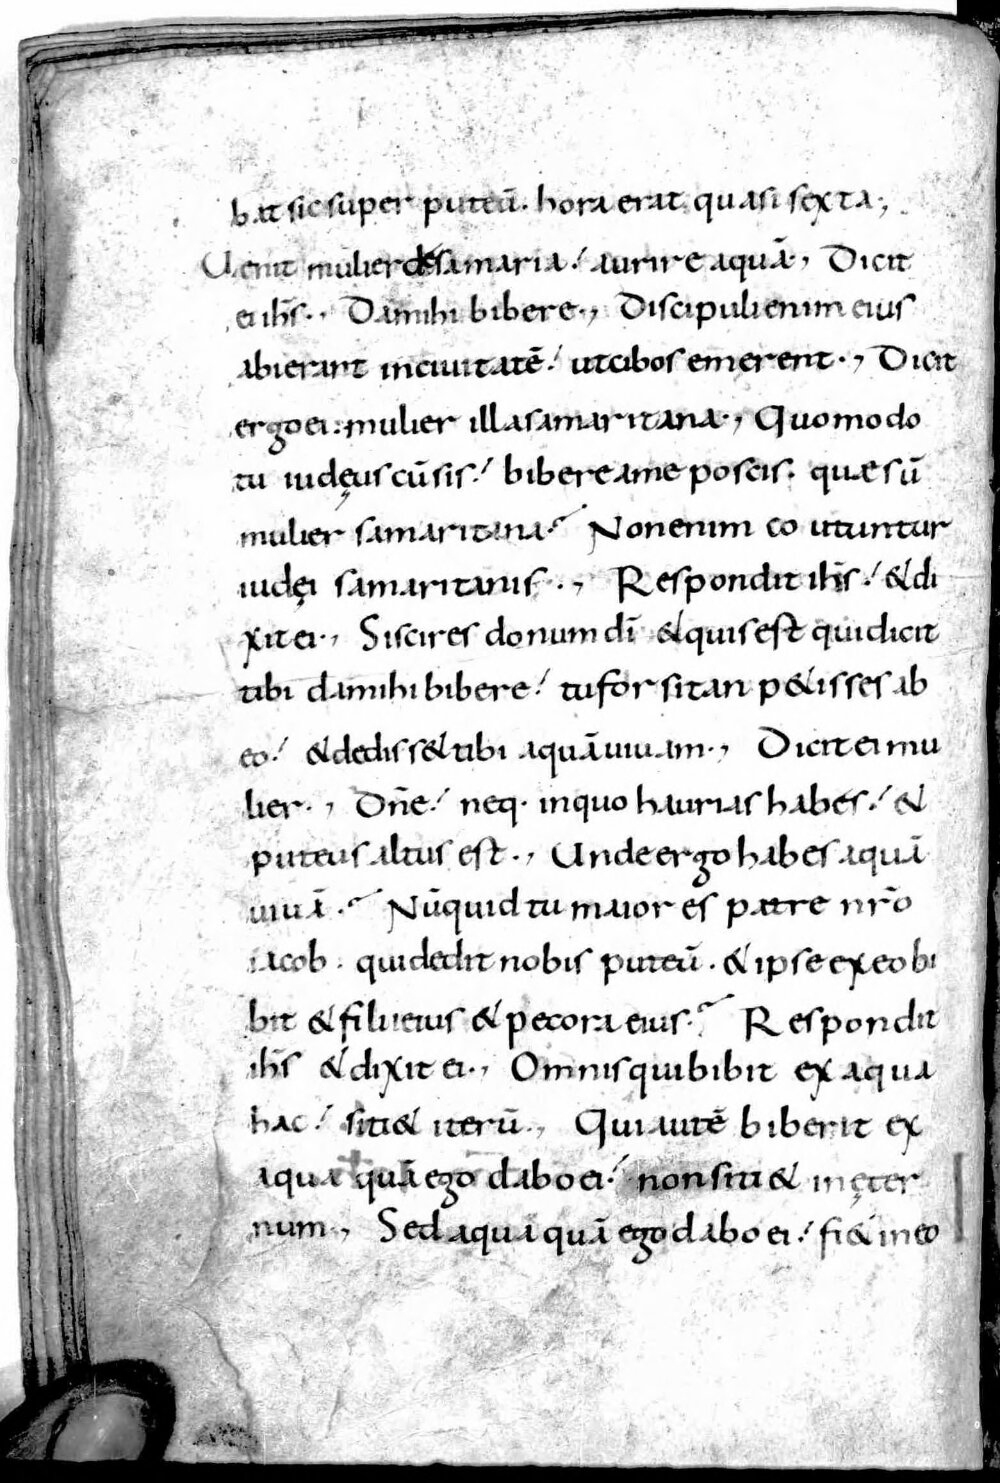 bat sic super puteū. hora erat quasi sexta.,
Uenit mulier de samaria! aurire aquā., Dicit
ei ih̄s., Da mihi bibere., Discipuli enim eius
abierant in ciuitatē! ut cibos emerent., Dicit
ergo ei: mulier illa samaritana., Quomodo
tu iudęus cū sis! bibere a me poscis. quæ sū
mulier samaritana? Non enim co utuntur
iudęi samaritanis., Respondit ih̄s! & di
xit ei., Si scires donum dī & quis est qui dicit
tibi da mihi bibere! tu forsitan p&isses ab
eo! & dediss& tibi aquā uiuam., Dicit ei mu
lier., Dn̄e! neq. in quo haurias habes! &
puteus altus est., Unde ergo habes aquā
uiuā? Nūquid tu maior es patre nr̄o
iacob. qui dedit nobis puteū. & ipse ex eo bi
bit & filii eius & pecora eius? Respondit
ih̄s & dixit ei., Omnis qui bibit ex aqua
hac! siti& iterū., Qui autē biberit ex
aqua quā ego dabo ei! non siti& in ęter
num., Sed aqua quā ego dabo ei! fi& in eo